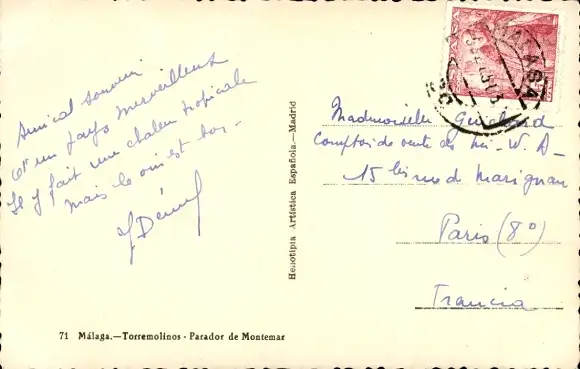 Amical souvenir
C'est un pays merveilleux
Il y fait une chaleur tropicale
mais le vin est bon -
Heliotipia Artística Española.—Madrid
MALAGA
Mademoiselle
Comptoir de vente des W. A-
15 bis rue de Marignan
Paris (8°)
Francia
71 Málaga.—Torremolinos - Parador de Montemar